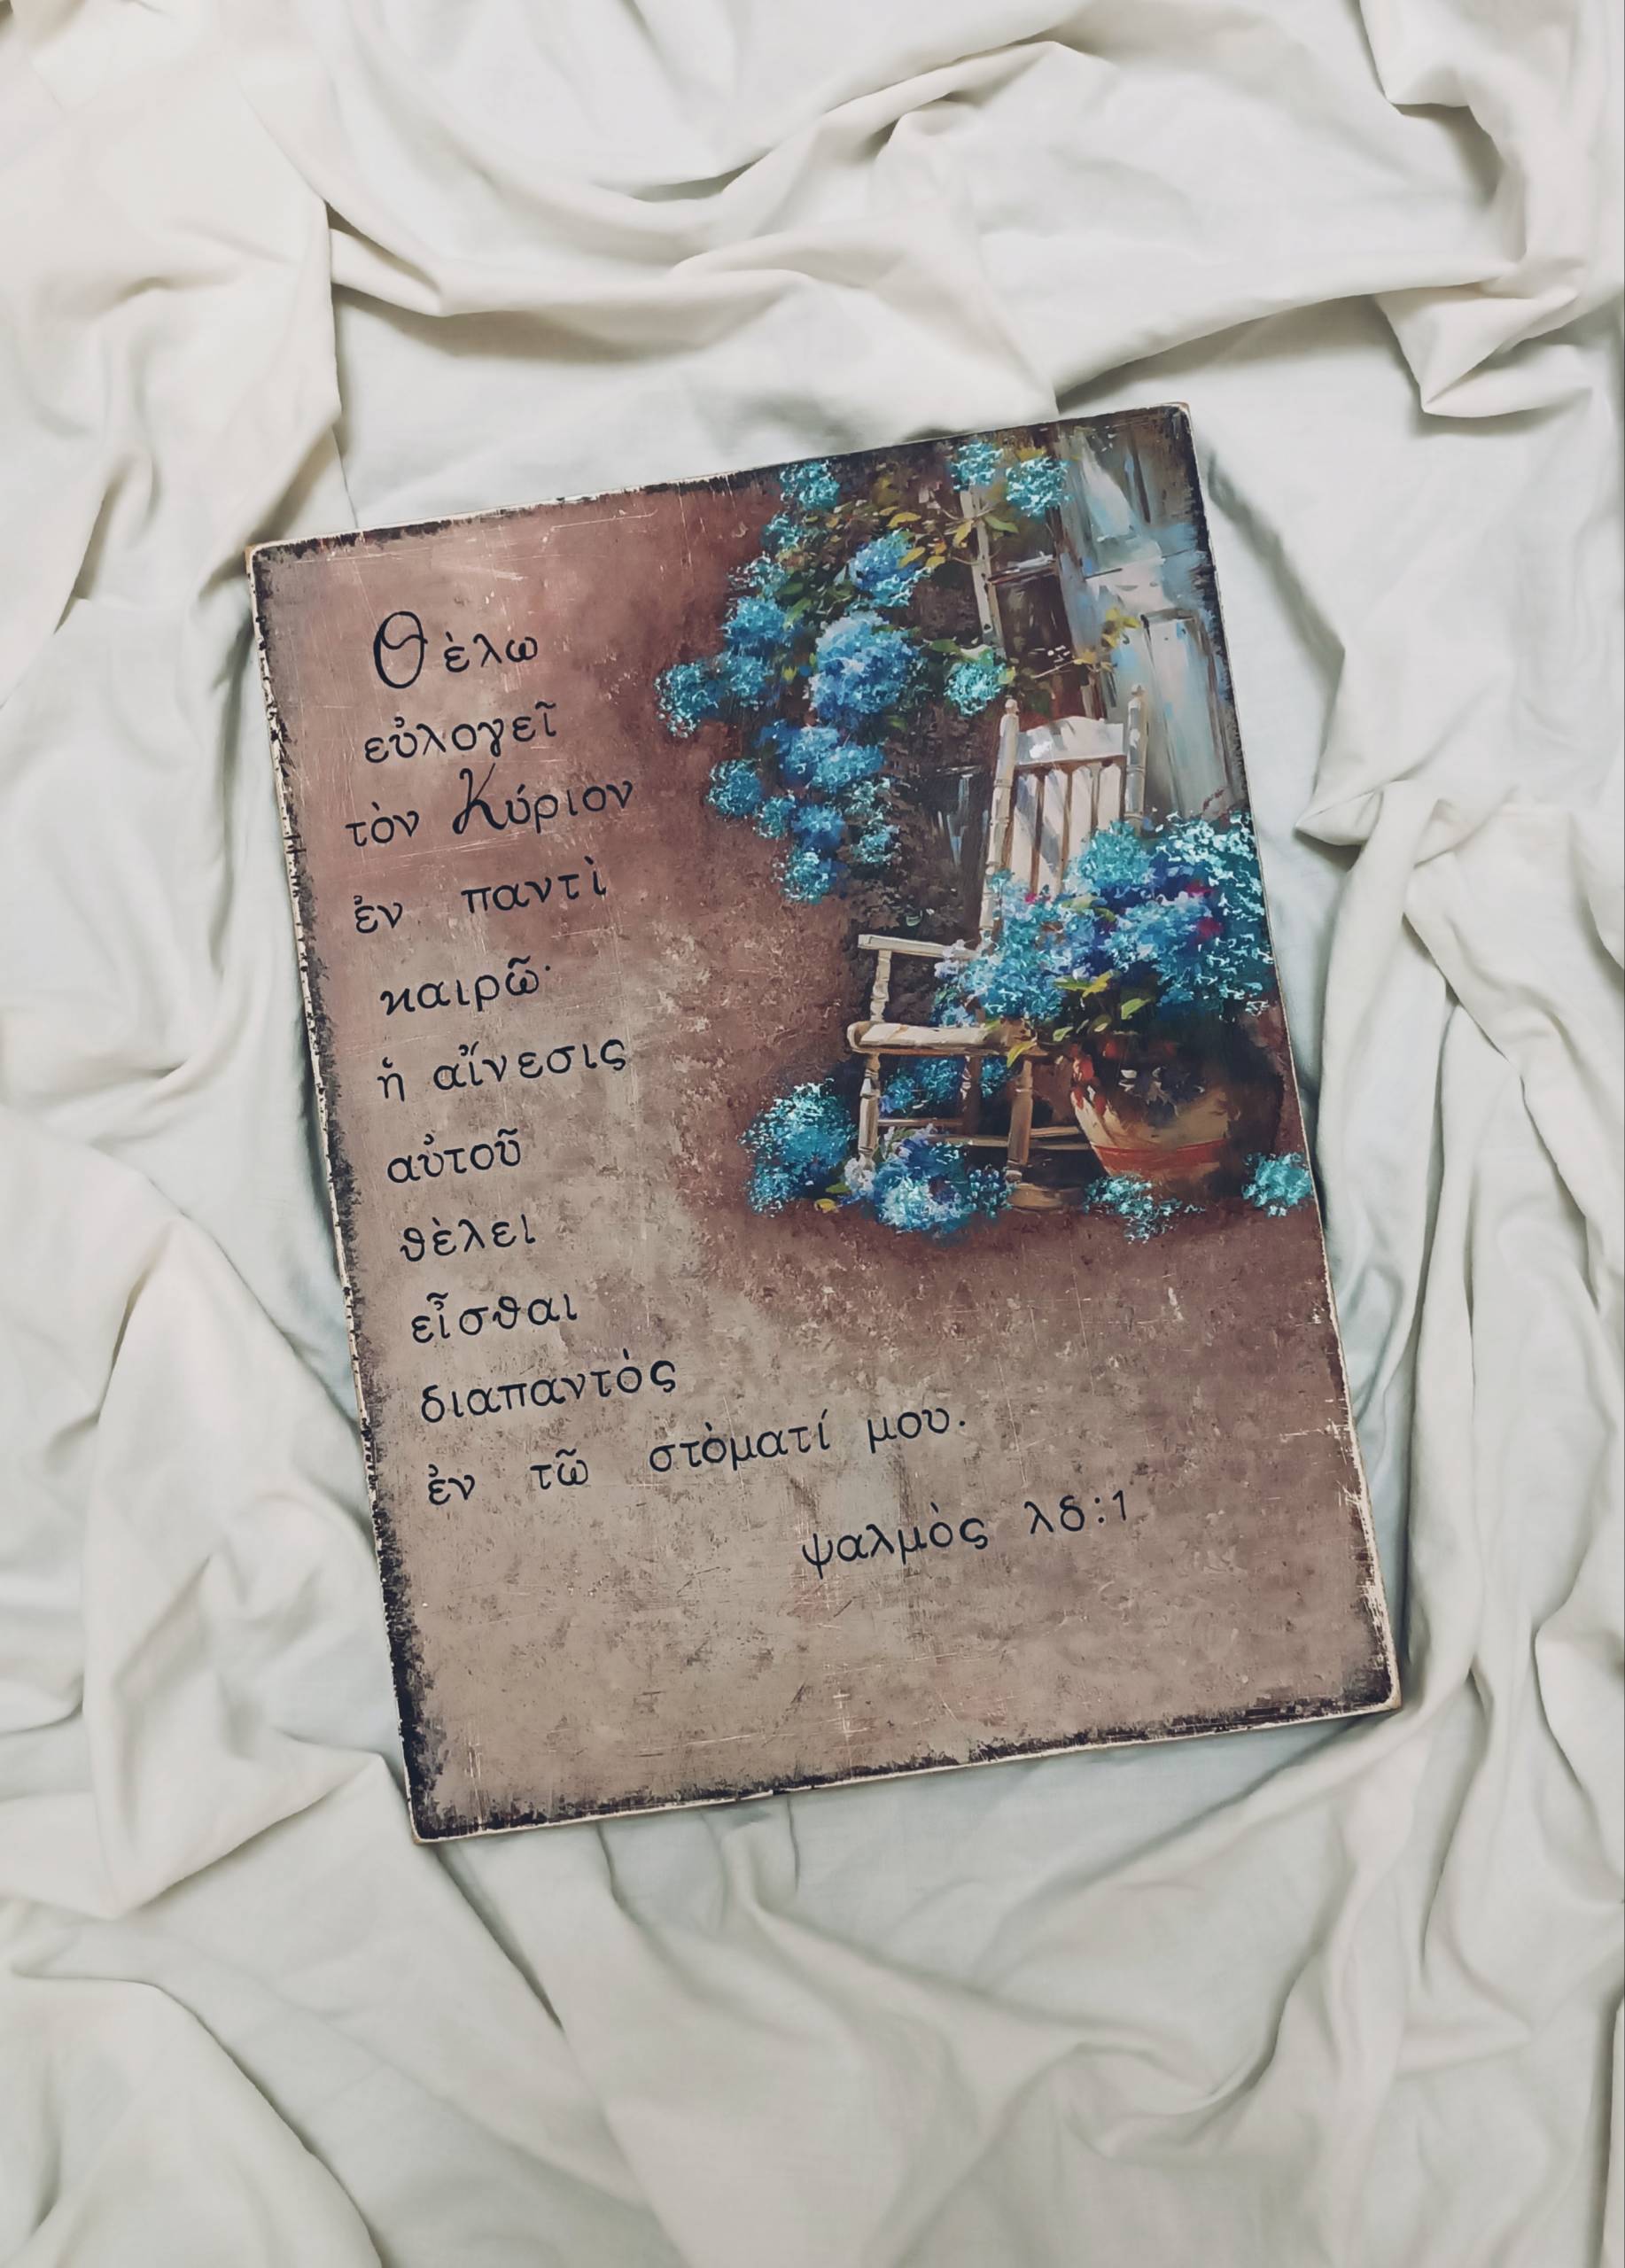 Θὲλω
εὐλογεῖ
τὸν Κύριον
ἐν παντὶ
καιρῶ·
ἡ αἴνεσις
αὐτοῦ
θὲλει
εἶσθαι
διαπαντὸς
ἐν τῶ στὸματί μου.
ψαλμὸς λδ:1